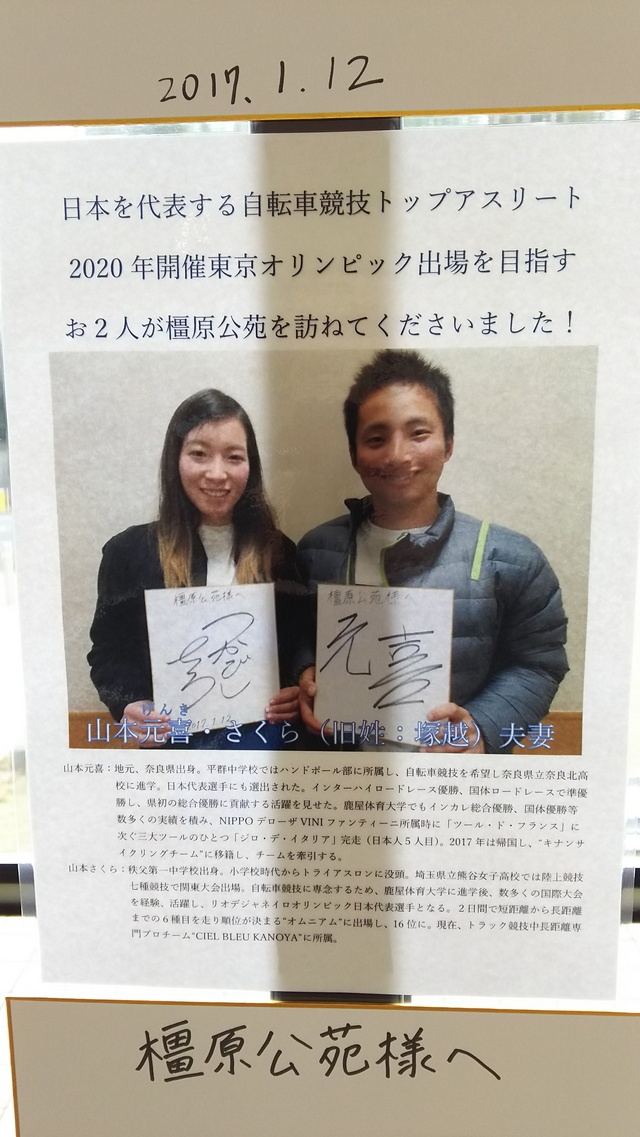 2017.1.12
日本を代表する自転車競技トップアスリート
2020年開催東京オリンピック出場を目指す
お２人が橿原公苑を訪ねてくださいました！
橿原公苑様へ
橿原公苑様へ
元喜
2017.1.12
げんき
山本元喜・さくら（旧姓：塚越）夫妻
山本元喜：地元、奈良県出身。平群中学校ではハンドボール部に所属し、自転車競技を希望し奈良県立奈良北高
校に進学。日本代表選手にも選出された。インターハイロードレース優勝、国体ロードレースで準優
勝し、県初の総合優勝に貢献する活躍を見せた。鹿屋体育大学でもインカレ総合優勝、国体優勝等
数多くの実績を積み、NIPPOデローザVINIファンティーニ所属時に「ツール・ド・フランス」に
次ぐ三大ツールのひとつ「ジロ・デ・イタリア」完走（日本人５人目）。2017年は帰国し、“キナンサ
イクリングチーム”に移籍し、チームを牽引する。
山本さくら：秩父第一中学校出身。小学校時代からトライアスロンに没頭。埼玉県立熊谷女子高校では陸上競技
七種競技で関東大会出場。自転車競技に専念するため、鹿屋体育大学に進学後、数多くの国際大会
を経験、活躍し、リオデジャネイロオリンピック日本代表選手となる。２日間で短距離から長距離
までの６種目を走り順位が決まる“オムニアム”に出場し、16位に。現在、トラック競技中長距離専
門プロチーム“CIEL BLEU KANOYA”に所属。
橿原公苑様へ